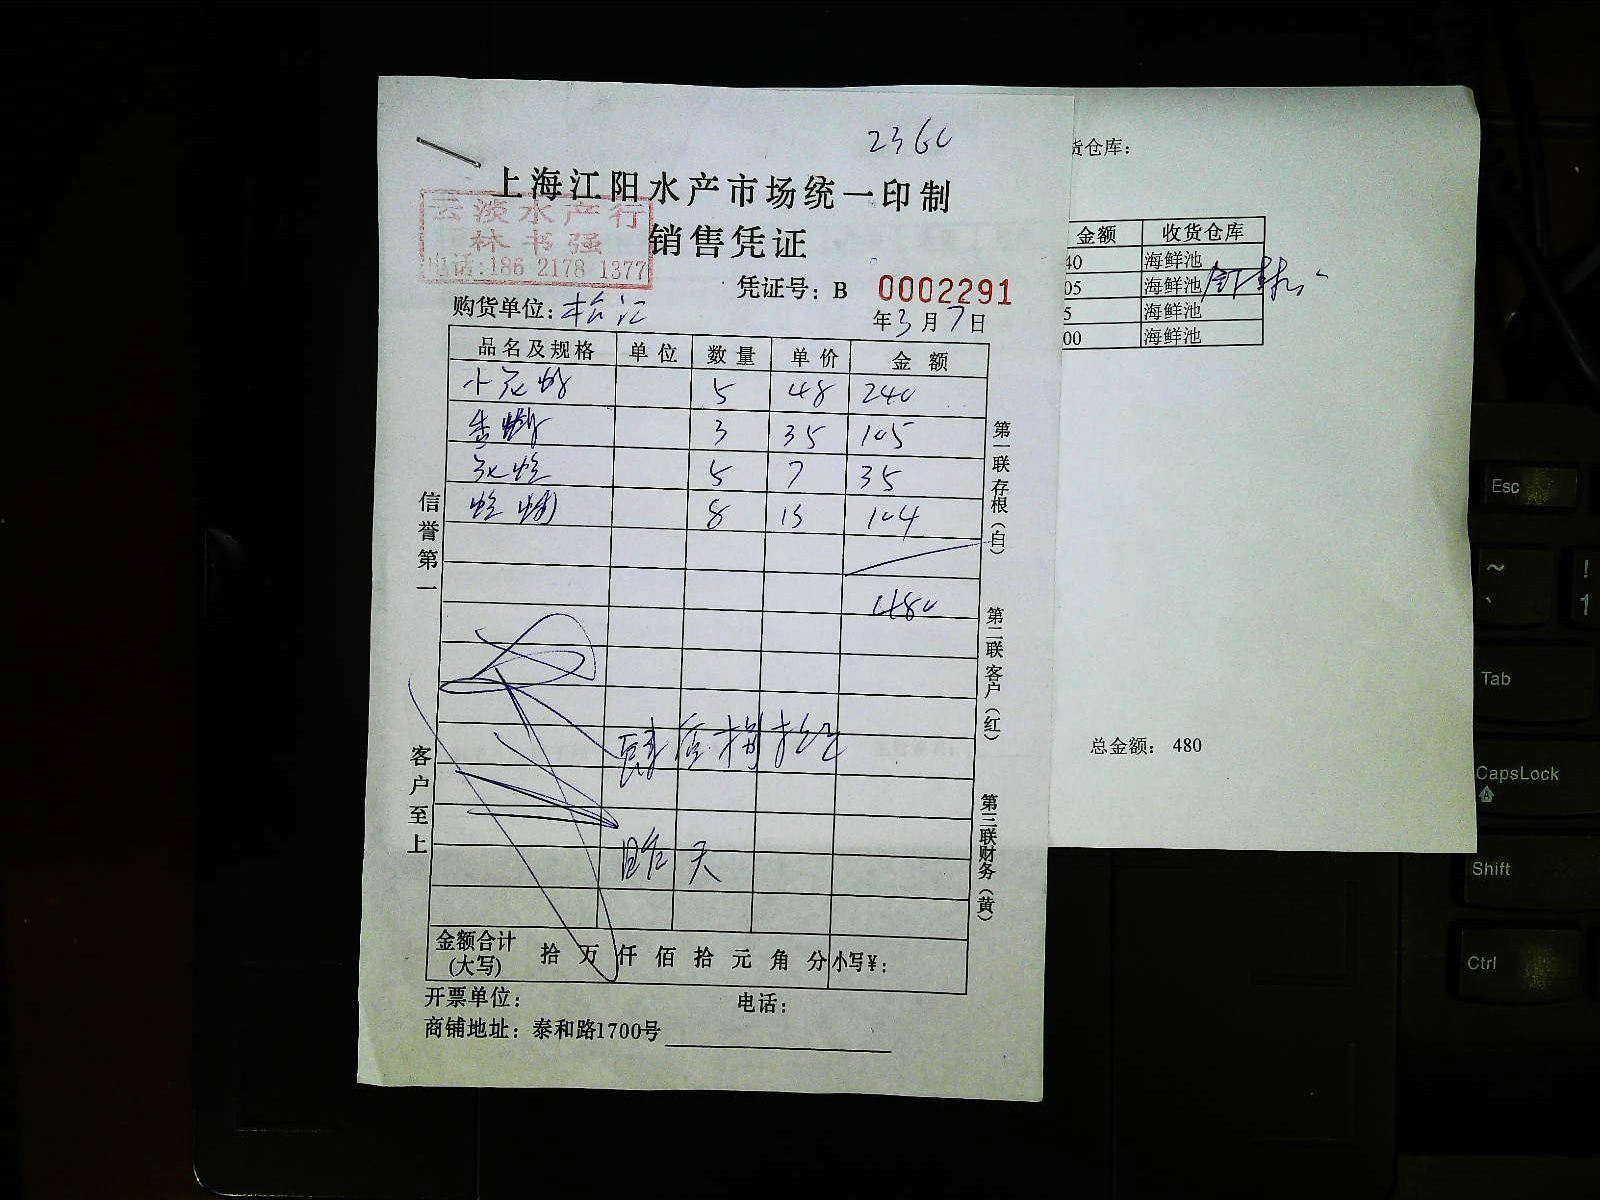 2360
上海江阳水产市场统一印制
云淡水产行
林书强
电话:186 2178 1377
销售凭证
凭证号：B 0002291
购货单位：松江
年3月7日
品名及规格 单位 数量 单价 金额
5 48 240
3 35 105
5 7 35
蛤蜊 8 13 104
480
肆佰捌拾
昨天
金额合计(大写) 拾 万 仟 佰 拾 元 角 分 小写¥：
开票单位： 电话：
商铺地址：泰和路1700号
信誉第一
客户至上
第一联存根（白）
第二联客户（红）
第三联财务（黄）
货仓库：
金额 收货仓库
40 海鲜池
05 海鲜池
5 海鲜池
00 海鲜池
总金额： 480
Esc
~
`
!
1
Tab
CapsLock
A
Shift
Ctrl